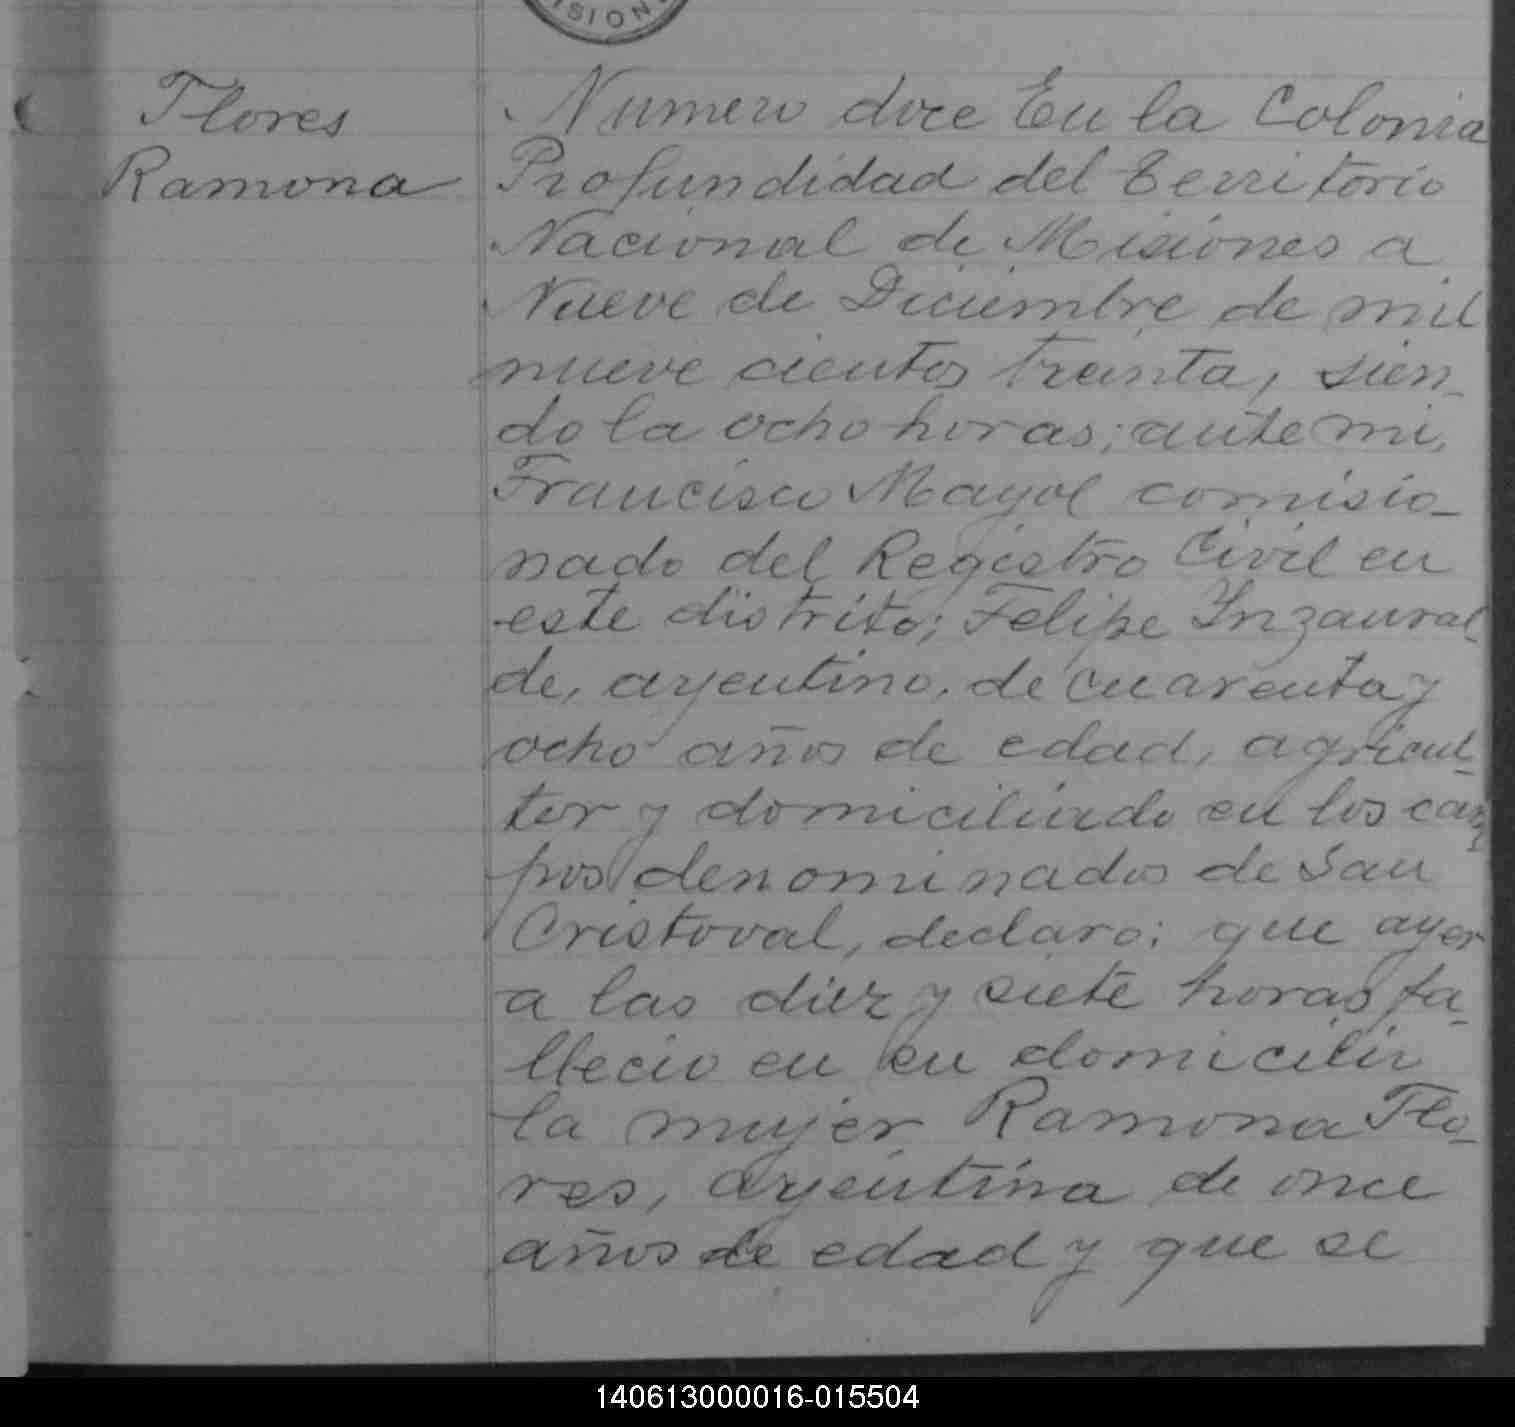 ISION
Flores
Ramona
Numero doce En la Colonia
Profundidad del Territorio
Nacional de Misiones a
Nueve de Diciembre de mil
nueve cientos treinta, sien-
do la ocho horas; ante mi,
Francisco Mayol comisio-
nado del Registro Civil en
este distrito; Felipe Inzaural
de, argentino, de cuarenta y
ocho años de edad, agricul-
tor y domiciliado en los cam
pos denominados de San
Cristoval, declaro; que ayer
a las diez y siete horas fa-
llecio en su domicilio
la mujer Ramona Flo-
res, argentina de once
años de edad y que se
140613000016-015504